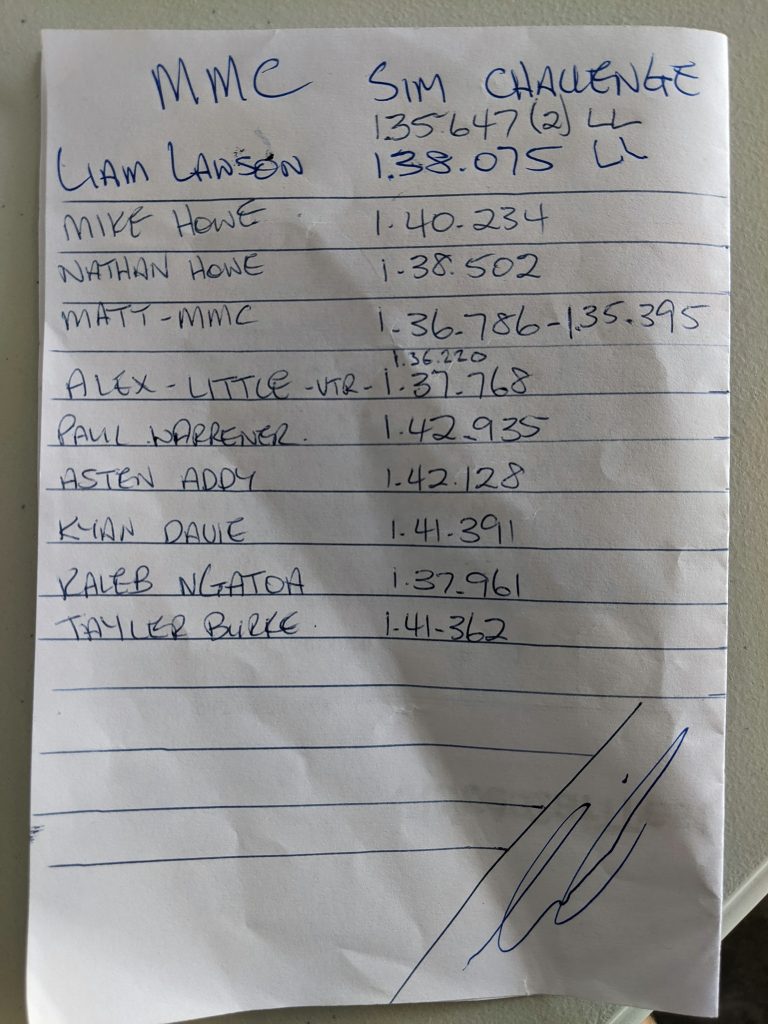 MMC SIM CHALLENGE
1.35.647 (2) LL
LIAM LAWSON 1.38.075 LL
MIKE HOWE 1.40.234
NATHAN HOWE 1.38.502
MATT-MMC 1.36.786-1.35.395
1.36.220
ALEX-LITTLE-VTR-1.37.768
PAUL WARRENER. 1.42.935
ASTEN ADDY 1.42.128
KYAN DAVIE 1.41.391
KALEB NGATOA 1.37.961
TAYLER BURKE. 1.41.362